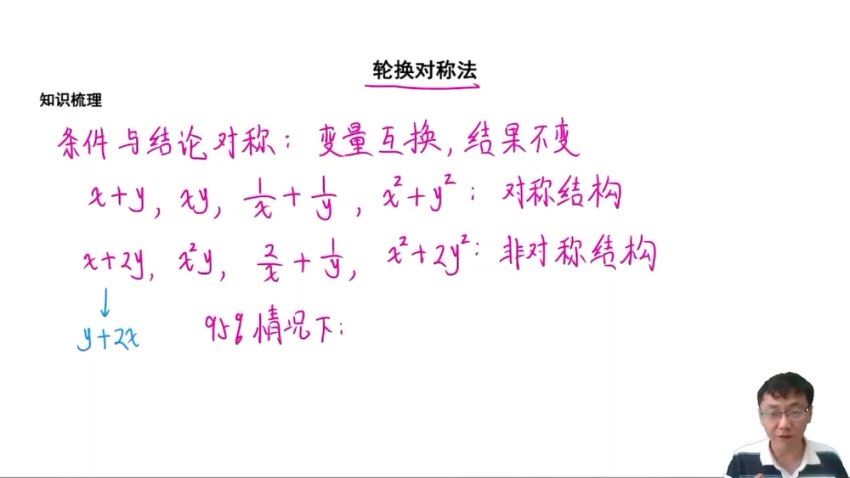 轮换对称法
知识梳理
条件与结论对称：变量互换，结果不变
x+y, xy, 1/x + 1/y, x²+y²：对称结构
x+2y, x²y, 2/x + 1/y, x²+2y²：非对称结构
↓
y+2x 95%情况下：